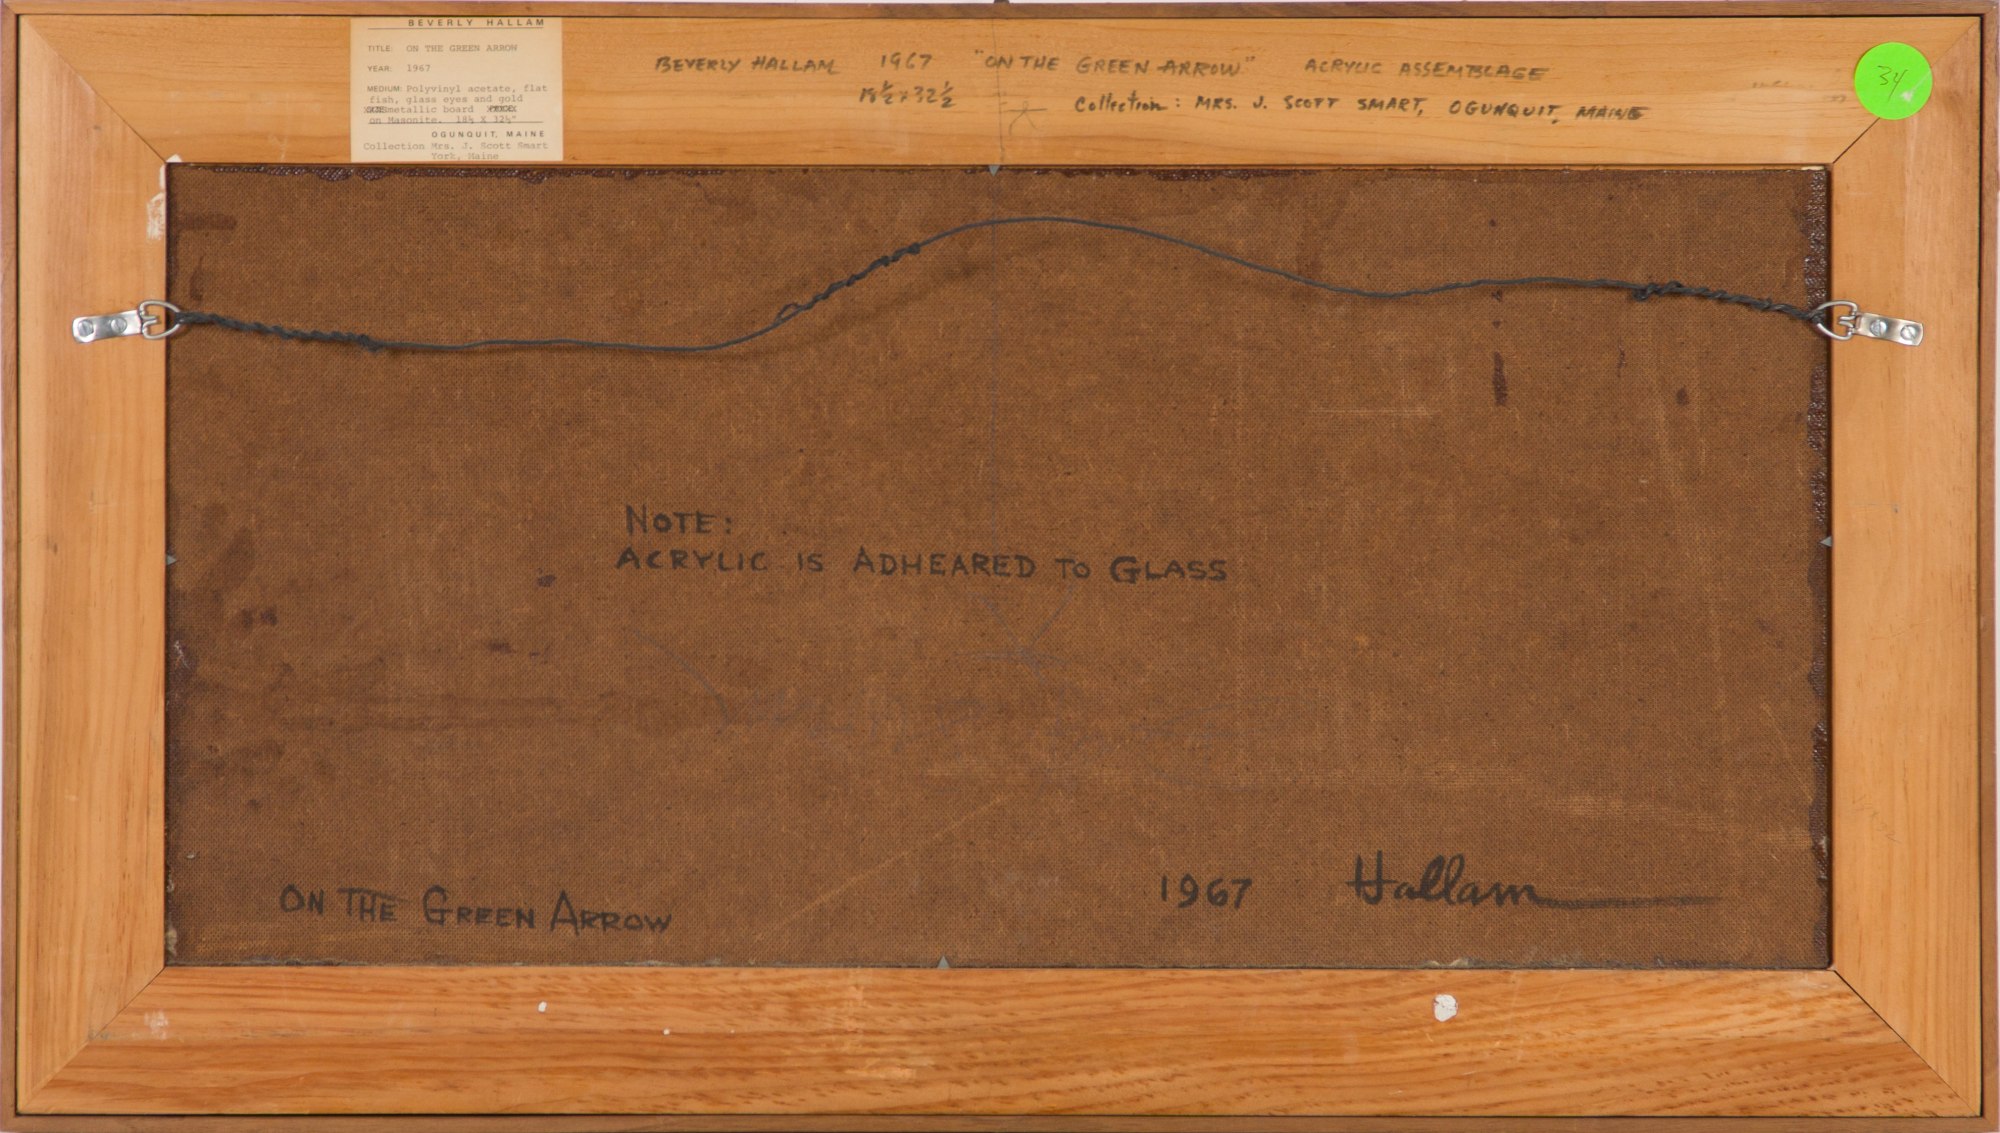 BEVERLY HALLAM
TITLE: ON THE GREEN ARROW
YEAR: 1967
MEDIUM: Polyvinyl acetate, flat
fish, glass eyes and gold
metallic board
on Masonite. 18½ X 32½"
OGUNQUIT, MAINE
Collection Mrs. J. Scott Smart
York, Maine
BEVERLY HALLAM 1967 "ON THE GREEN ARROW" ACRYLIC ASSEMBLAGE
18½ x 32½ Collection: MRS. J. SCOTT SMART, OGUNQUIT, MAINE
34
NOTE:
ACRYLIC IS ADHEARED TO GLASS
ON THE GREEN ARROW
1967 Hallam